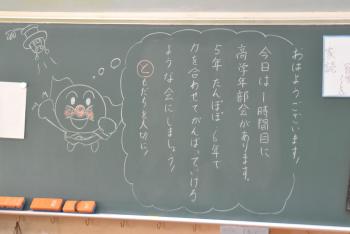 おはようございます!
今日は1時間目に
高学年部会があります。
5年 たんぽぽ 6年で
力を合わせてがんばっていける
ような会にしましょう!
ともだちを大切に!